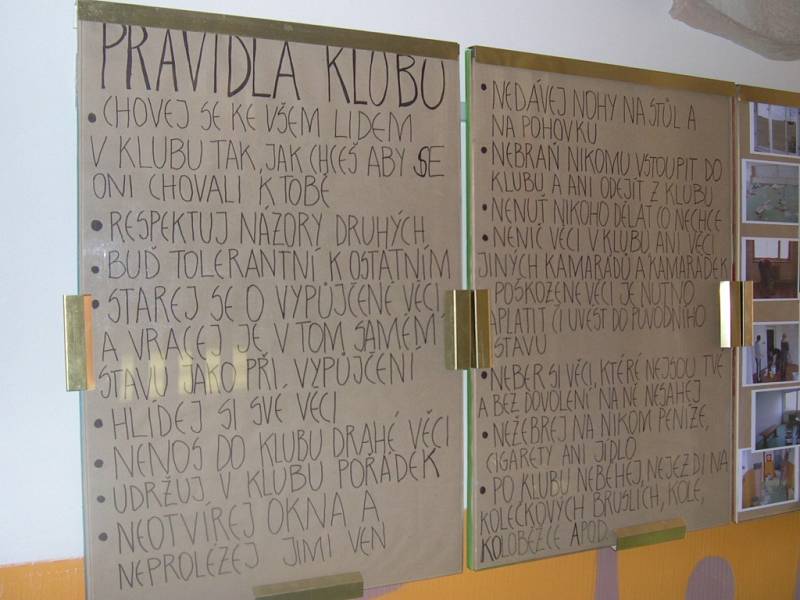 PRAVIDLA KLUBU
• CHOVEJ SE KE VŠEM LIDEM
V KLUBU TAK, JAK CHCEŠ ABY SE
ONI CHOVALI K TOBĚ
• RESPEKTUJ NÁZORY DRUHÝCH
• BUĎ TOLERANTNÍ K OSTATNÍM
• STAREJ SE O VYPŮJČENÉ VĚCI
A VRACEJ JE V TOM SAMÉM
STAVU JAKO PŘI VYPŮJČENÍ
• HLÍDEJ SI SVÉ VĚCI
• NENOS DO KLUBU DRAHÉ VĚCI
• UDRŽUJ V KLUBU POŘÁDEK
• NEOTVÍREJ OKNA A
NEPROLÉZEJ JIMI VEN
• NEDÁVEJ NOHY NA STŮL A
NA POHOVKU
• NEBRAŇ NIKOMU VSTOUPIT DO
KLUBU A ANI ODEJÍT Z KLUBU
• NENUŤ NIKOHO DĚLAT CO NECHCE
• NENIČ VĚCI V KLUBU ANI VĚCI
JINÝCH KAMARÁDŮ A KAMARÁDEK
• POŠKOZENÉ VĚCI JE NUTNO
APLATIT ČI UVÉST DO PŮVODNÍHO
STAVU
• NEBER SI VĚCI, KTERÉ NEJSOU TVÉ
A BEZ DOVOLENÍ NA NĚ NESAHEJ
• NEŽEBREJ NA NIKOM PENÍZE,
CIGARETY ANI JÍDLO
• PO KLUBU NEBĚHEJ, NEJEZDI NA
KOLEČKOVÝCH BRUSLÍCH, KOLE,
KOLOBĚŽCE APOD.